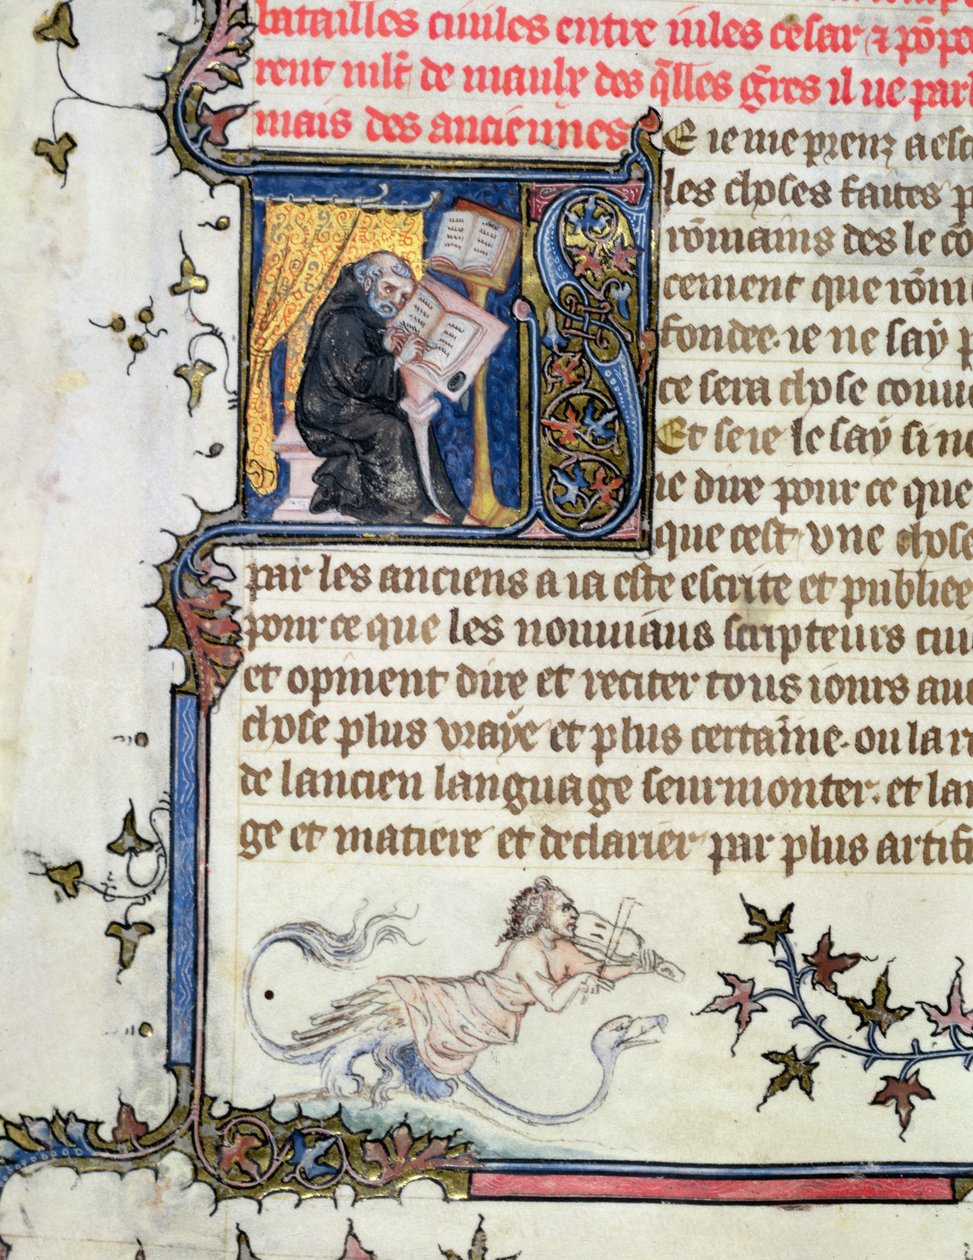 batailles ciuiles entre iules cesar ⁊ põpe
rent
de
des q̃lles g̃res il ue parl
mais des anciennes
E ie me prenz a esc
les choses faites p
rõmains des le cõ
cement que rõm
fondee. ie ne say p
ce sera chose conu
Et se ie le say si n
ie dire pour ce que
que cest vne chose
par les anciens a ia este escrite et publiee
pour ce que les nouuiaus scripteurs cui
et opinent dire et reciter tous iours au
chose plus vraye et plus certaine. ou la r
de lancien language seurmonter. et lan
ge et matiere et declarier par plus artifi